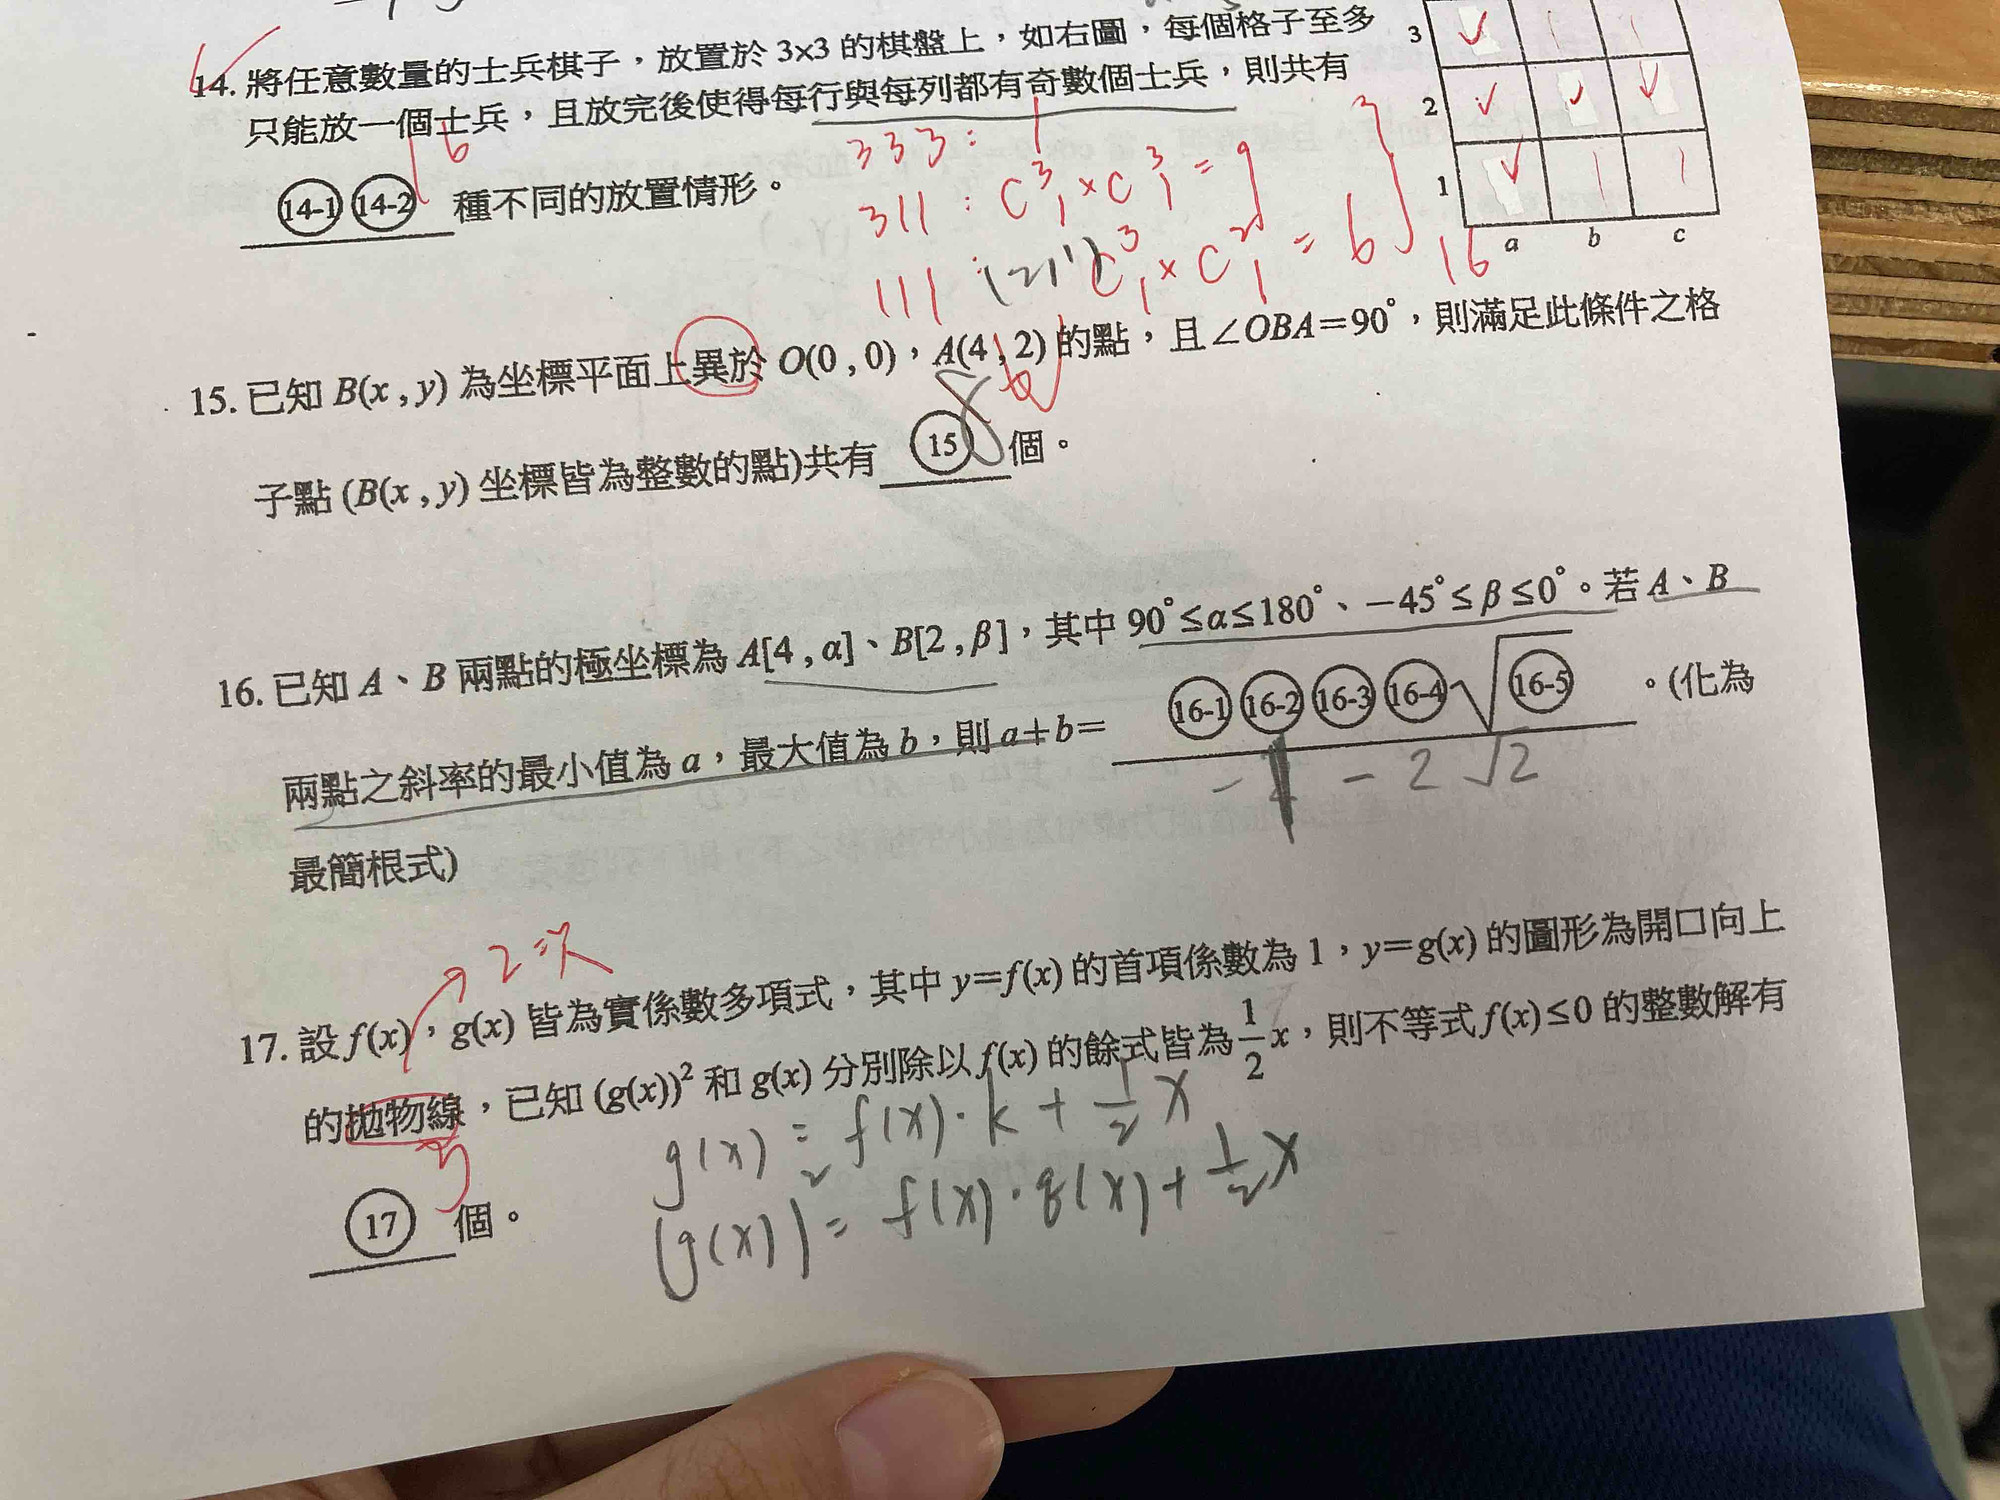 14. 將任意數量的士兵棋子，放置於 3×3 的棋盤上，如右圖，每個格子至多
只能放一個士兵，且放完後使得每行與每列都有奇數個士兵，則共有
16
14-1 14-2 種不同的放置情形。
333 : 1
311 : C³₁×C³₁=9
111 : C³₁×C²₁=6
16
3
2
1
a b c
15. 已知 B(x , y) 為坐標平面上異於 O(0 , 0)，A(4 , 2) 的點，且∠OBA=90°，則滿足此條件之格
子點 (B(x , y) 坐標皆為整數的點)共有 15 個。
6
16. 已知 A、B 兩點的極坐標為 A[4 , α]、B[2 , β]，其中 90°≤α≤180°、−45°≤β≤0°。若 A、B
兩點之斜率的最小值為 a，最大值為 b，則 a+b= 16-1 16-2 16-3 16-4 √16-5 。(化為
最簡根式)
-1-2√2
2次
17. 設 f(x)，g(x) 皆為實係數多項式，其中 y=f(x) 的首項係數為 1，y=g(x) 的圖形為開口向上
的拋物線，已知 (g(x))² 和 g(x) 分別除以 f(x) 的餘式皆為 1/2 x，則不等式 f(x)≤0 的整數解有
17 個。
5
g(x) = f(x)·k + 1/2 x
(g(x))² = f(x)·g(x) + 1/2 x